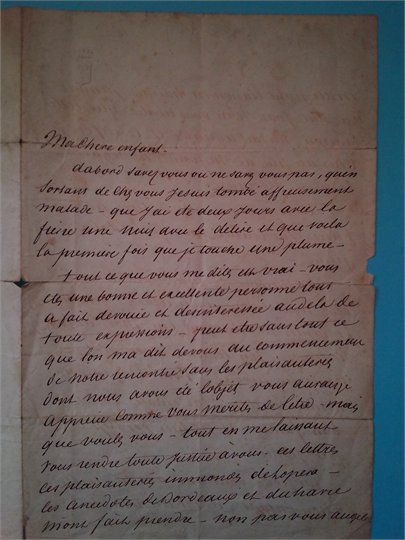 Ma Chere enfant.
dabord savez vous ou ne savez vous pas, qu'en
sortant de chez vous je suis tombé affreusement
malade - que j'ai été deux jours avec la
fievre une nuit avec le delire et que voila
la premiere fois que je touche une plume -
tout ce que vous me dites est vrai - vous
etes une bonne et excellente personne tout
a fait devouée et desinteressée au dela de
toute expressions - peut etre sans tout ce
que l'on m'a dit de vous au commencement
de notre rencontre sans les plaisanteries
dont nous avons été l'objet vous aurais je
appreciée comme vous meritez de l'etre - mais
que voulez vous - tout en me laissant
vous rendre toute justice à vous - ces lettres
ces plaisanteries immondes de l'opera -
les anecdotes de Bordeaux et du havre
m'ont fait prendre - non pas vous